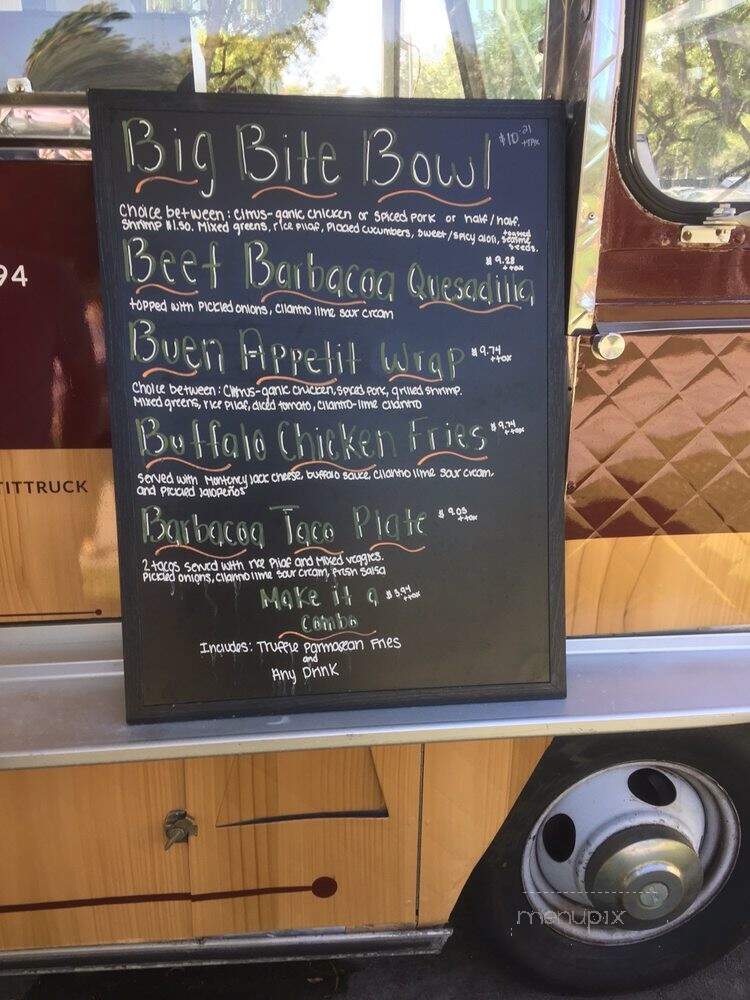 Big Bite Bowl $10.21 +tax
Choice between: citrus-garlic chicken or spiced pork or half/half.
Shrimp $1.50. Mixed greens, rice pilaf, Pickled cucumbers, sweet/spicy aioli, toasted sesame seeds.
Beef Barbacoa Quesadilla $9.28 +tax
topped with Pickled onions, cilantro lime sour cream
Buen Appetit Wrap $9.74 +tax
Choice between: Citrus-garlic chicken, spiced pork, grilled shrimp.
Mixed greens, rice pilaf, diced tomato, cilantro-lime cilantro
Buffalo Chicken Fries $9.74 +tax
served with Monterey jack cheese, buffalo sauce, cilantro lime sour cream,
and Pickled jalapeños
Barbacoa Taco Plate $9.05 +tax
2 tacos served with rice Pilaf and Mixed veggies.
Pickled onions, cilantro lime sour cream, fresh salsa
Make it a $3.94 +tax
combo
Includes: Truffle parmasean Fries
and
Any Drink
94
TITTRUCK
menupix